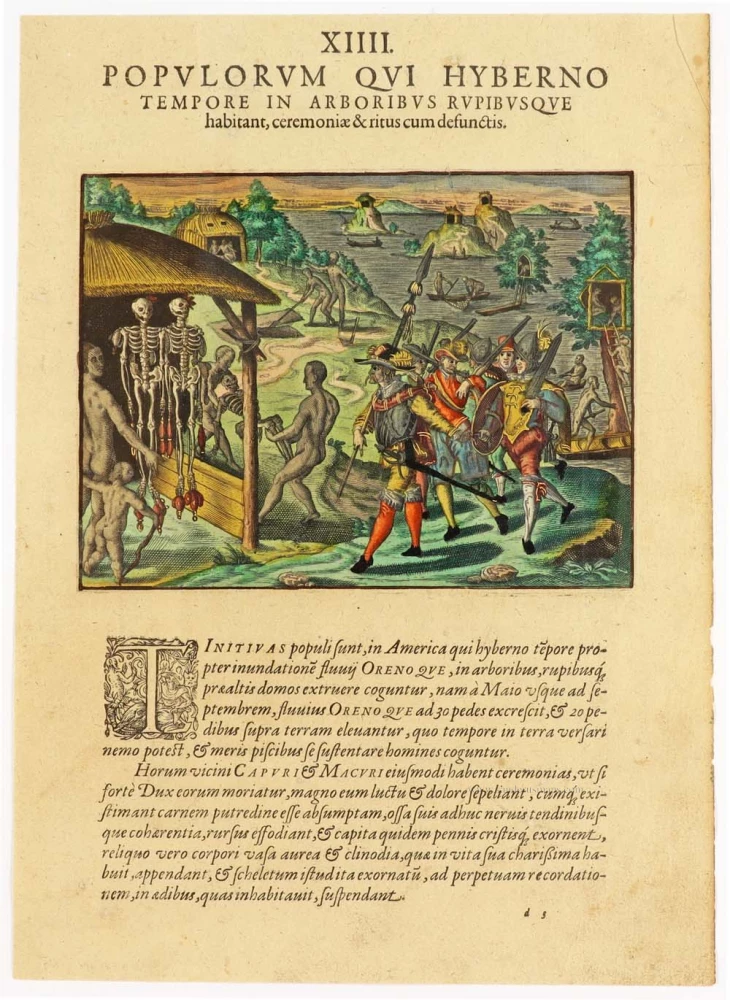 XIIII.
POPVLORVM QVI HYBERNO
TEMPORE IN ARBORIBVS RVPIBVSQVE
habitant, ceremoniæ & ritus cum defunctis.
TINITIVAS populi sunt, in America qui hyberno tẽpore pro-
pter inundationẽ fluuij ORENOQVE, in arboribus, rupibusq́;
præaltis domos extruere coguntur, nam à Maio vsque ad se-
ptembrem, fluuius ORENOQVE ad 30 pedes excrescit, & 20 pe-
dibus supra terram eleuantur, quo tempore in terra versari
nemo potest, & meris piscibus se sustentare homines coguntur.
Horum vicini CAPVRI & MACVRI eiusmodi habent ceremonias, vt si
fortè Dux eorum moriatur, magno eum luctu & dolore sepeliant, cumq́; exi-
stimant carnem putredine esse absumptam, ossa suis adhuc neruis tendinibus-
que cohærentia, rursus effodiant, & capita quidem pennis cristisq́; exornent,
reliquo vero corpori vasa aurea & clinodia, quæ in vita sua charißima ha-
buit, appendant, & scheletum istud ita exornatũ, ad perpetuam recordatio-
nem, in ædibus, quas inhabitauit, suspendant.
d 3